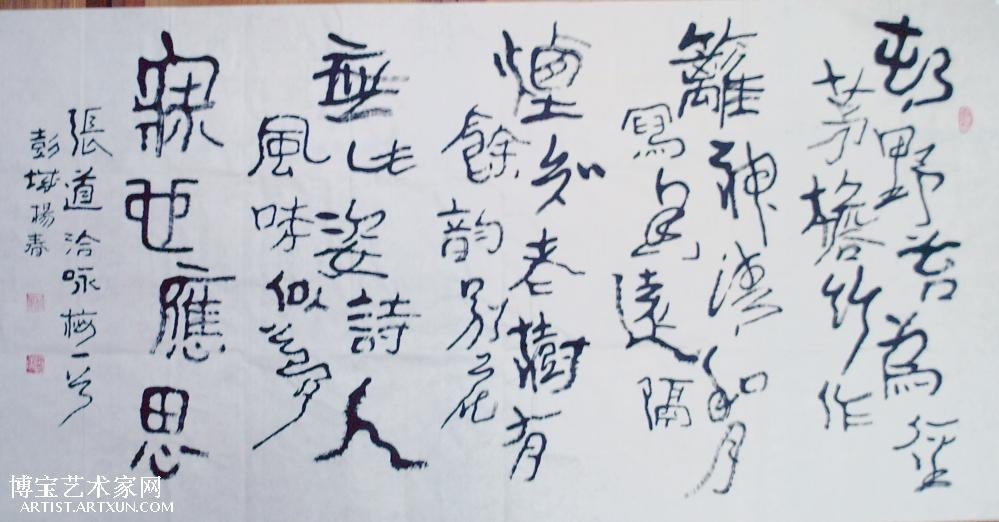 邨野苔為徑
茅檐竹作
籬神清和月
寫香遠隔
煙知老樹有
餘韵別花
無此姿詩人
風味似夢
寐也應思
張道洽咏梅一首
彭城揚春
博宝艺术家网
ARTIST.ARTXUN.COM